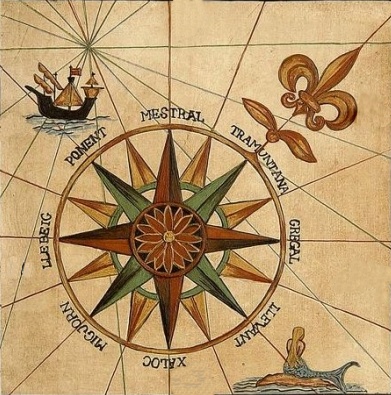 MESTRAL
TRAMUNTANA
GREGAL
LLEVANT
XALOC
MIGJORN
LLEBEIG
PONENT